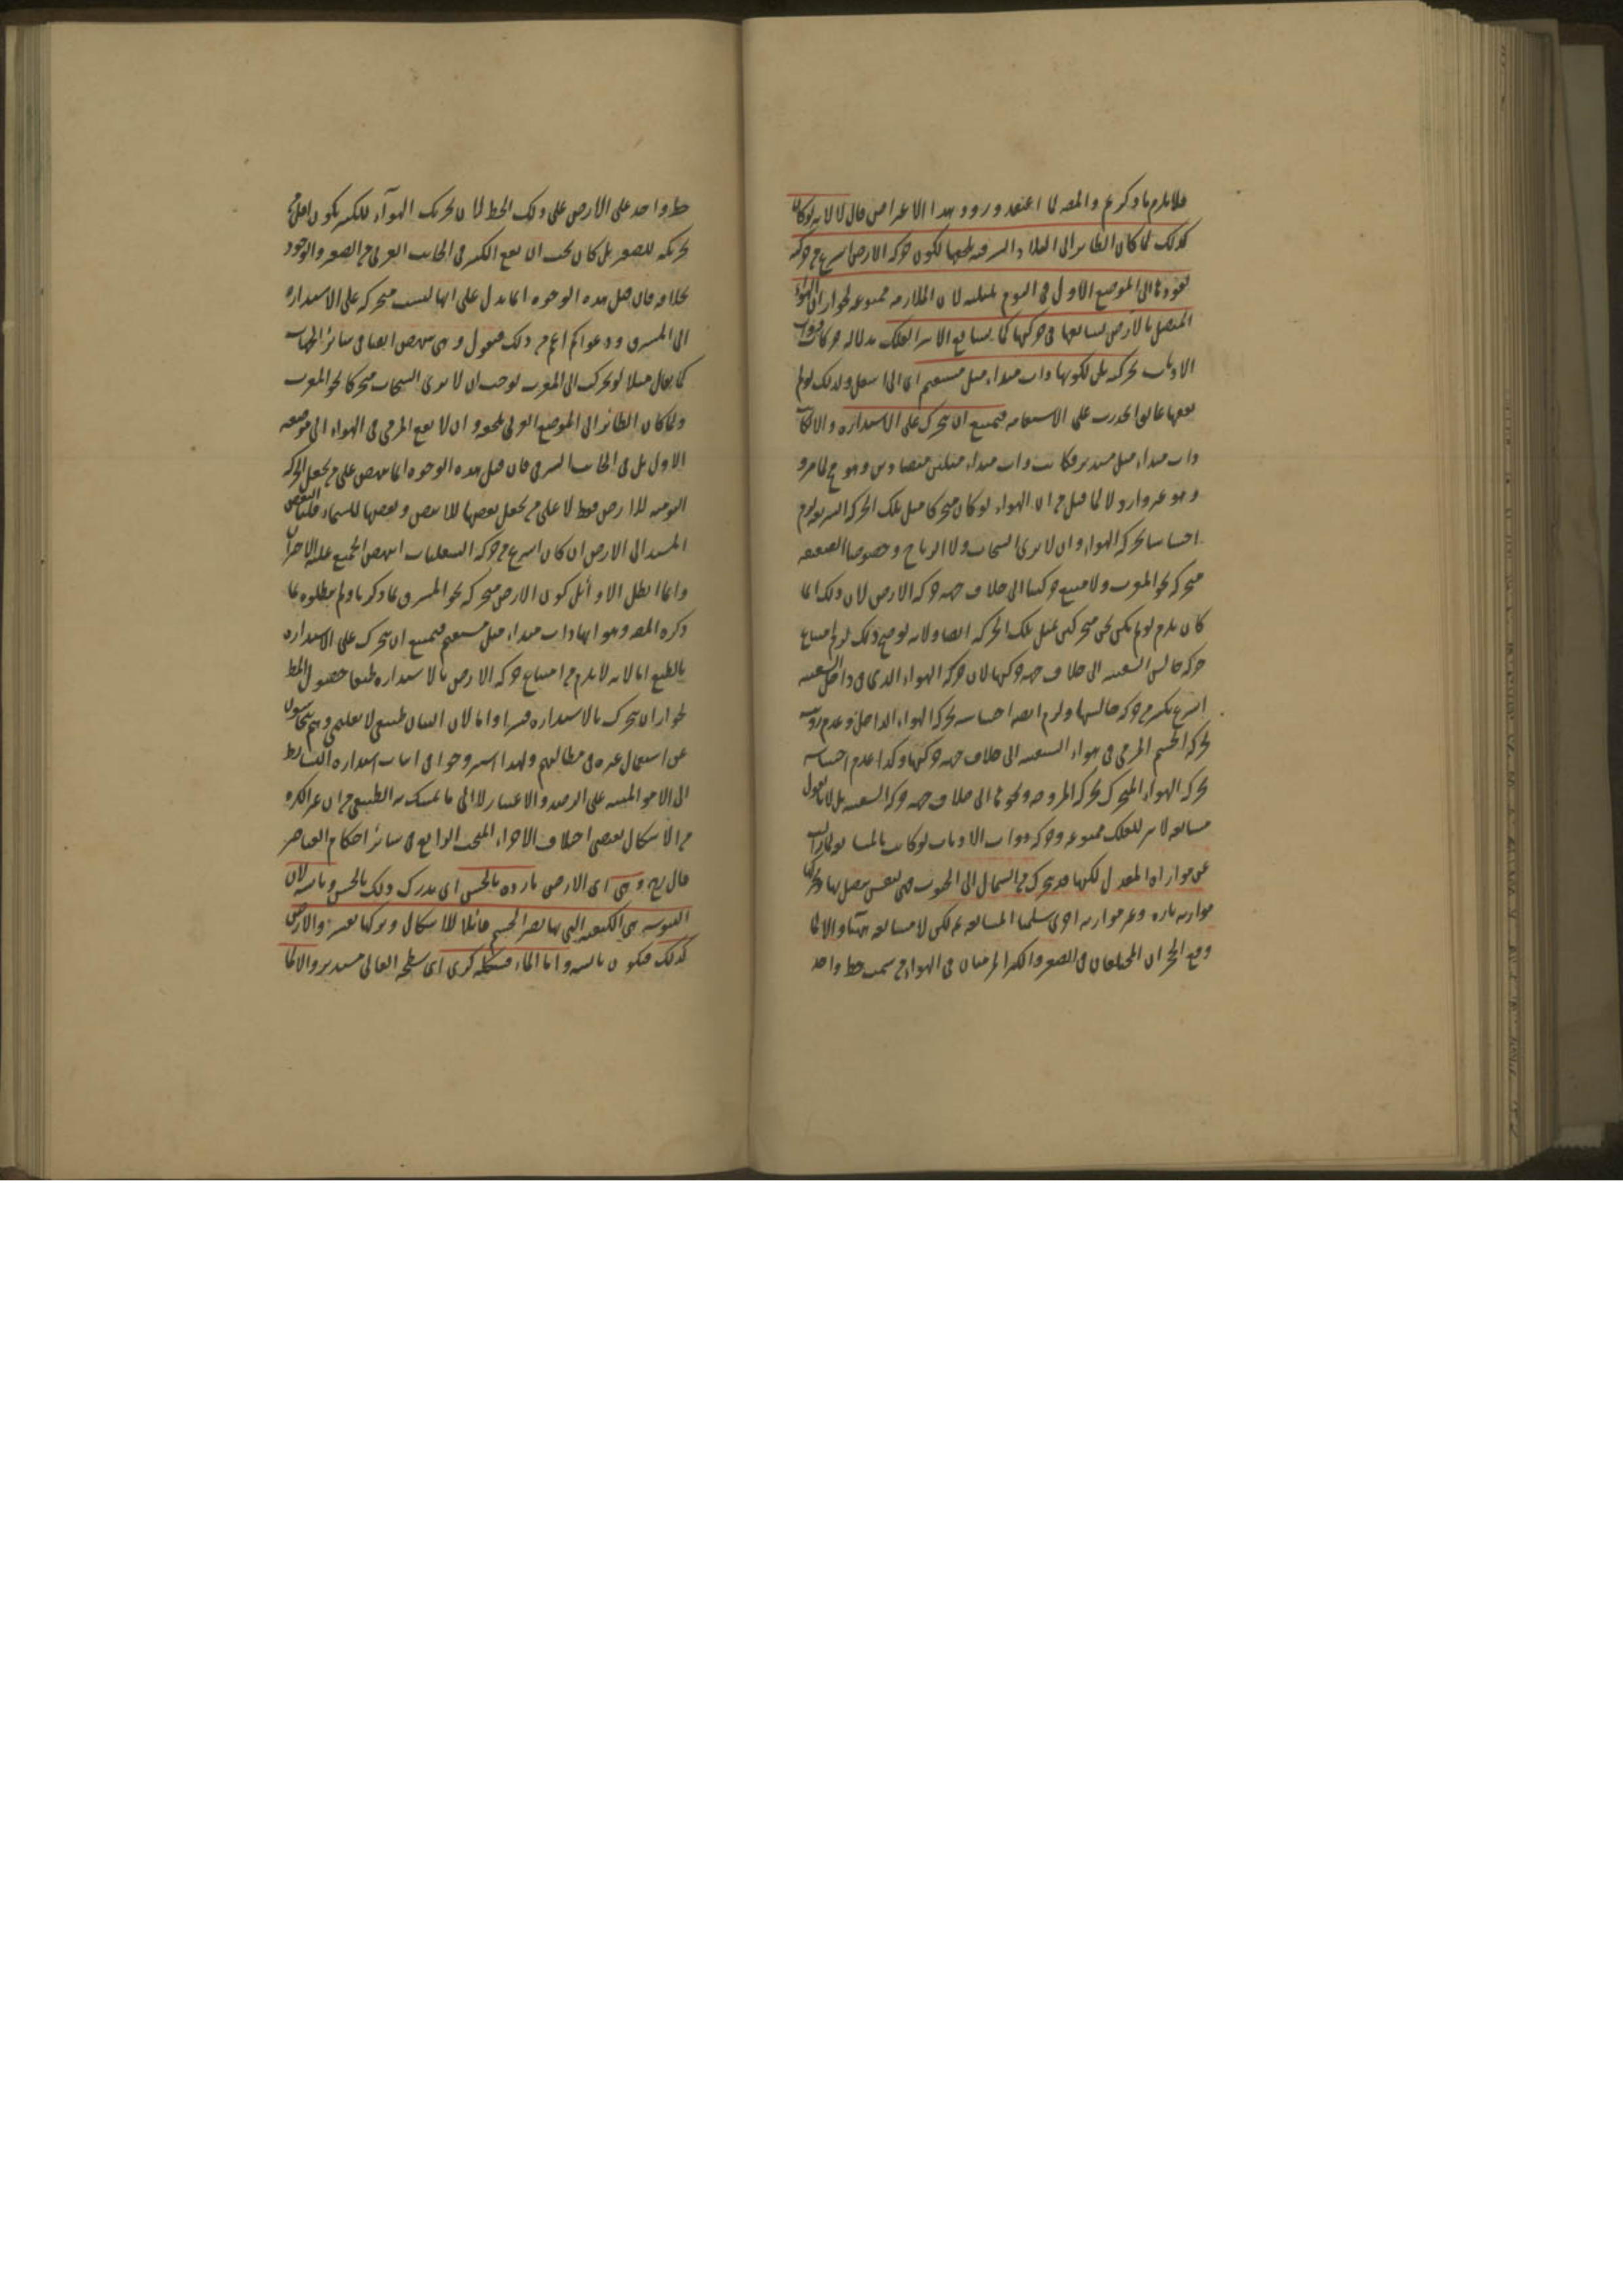 فلا يلزم ما ذكرتم والمصه لما اعتقد ورود هذا الاعتراض قال لا لانه لو كان
كذلك لما كان الطائر الى البلاد الشرقيه يلحقها لكون حركه الارض اسرع من حركته
لعودها الى الموضع الاول في اليوم بليلته لان الملازمه ممنوعه لجواز ان الهواء
المتصل بالارض يشايعها في حركتها كما يشايع الاثير الفلك بدلاله حركات ذوات
الاذناب بحركته بل لكونها ذات مبداء ميل مستقيم اى الى اسفل ولذلك لو لم
يعقها عائق انحدرت على الاستقامه فيمتنع ان يتحرك على الاستداره والا لكانت
ذات مبداء ميل مستدير فكانت ذات مبداء ميلين متضادين وهو مح لما مر و
وهو غير وارد لا لما قيل من ان الهواء لو كان متحركا مثل تلك الحركه السريعه لزم
احساسنا بحركه الهواء وان لا يرى السحاب ولا الرياح وخصوصا الضعيفه
متحركه نحو المغرب ولامتنع حركتنا الى خلاف جهه حركه الارض لان ذلك انما
كان يلزم لو لم نكن نحن متحركين بمثل تلك الحركه ايضا ولانه لو صح ذلك لزم امتناع
حركه جالس السفينه الى خلاف جهه حركتها لان حركه الهواء الذى في داخل السفينه
اسرع بكثير من حركه جالسها ولزم ايضا احساسه بحركه الهواء الداخل وعدم رؤيته
لحركه الجسم المرمي في هواء السفينه الى خلاف جهه حركتها وكذا عدم احساسه
بحركه الهواء المتحرك بحركه المروحه ونحوها الى خلاف جهه حركه السفينه بل لانا نقول
مشايعه الاثير للفلك ممنوعه وحركه ذوات الاذناب لو كانت بالمشايعه لما زالت
عن موازاه المعدل لكنها قد تتحرك من الشمال الى الجنوب فهي لنفس يتصل بها يحركها
موازيه تاره وغير موازيه اخرى سلمنا المشايعه ثم لكن لا مشايعه هنا والا لما
وقع الحجران المختلفان في الصغر والكبر المرميان في الهواء من سمت خط واحد
خط واحد على الارض على ذلك الخط لان تحريك الهوآء للكبير يكون اقل من
تحريكه للصغير بل كان يجب ان يقع الكبير في الجانب الغربي من الصغير والوجود
بخلافه فان قيل هذه الوجوه انما يدل على انها ليست متحركه على الاستداره
الى المشرق ودعواكم اعم من ذلك فنقول وهي تنهض ايضا في سائر الجهات
كما يقال مثلا لو تحركت الى المغرب لوجب ان لا يرى السحاب متحركا نحو المغرب
ولما كان الطائر الى الموضع الغربي يلحقه وان لا يقع المرمي في الهواء الى موضعه
الاول بل في الجانب الشرقي فان قيل هذه الوجوه انما تنهض على من يجعل الحركه
اليوميه للارض فقط لا على من يجعل بعضها للارض وبعضها للسماء قلنا البعض
المسند الى الارض ان كان اسرع من حركه السفليات انتهض الجميع عليه الا الاخران
وانما ابطل الاوائل كون الارض متحركه نحو المشرق بما ذكرنا ولم يبطلوه بما
ذكره المصه وهو انها ذات مبداء ميل مستقيم فيمتنع ان يتحرك على الاستداره
بالطبع اما لانه لا يلزم من امتناع حركه الارض بالاستداره طبعا حصول المط
لجواز ان يتحرك بالاستداره قسرا واما لان البيان طبيعي لا تعليمي وهم يتحاشون
عن استعمال غيره في مطالبهم ولهذا استروحوا في اثبات استداره البسائط
الى الامور المبنيه على الرصد والاعتبار لا الى ما يتمسك به الطبيعي من ان غير الكره
من الاشكال يقتضي اختلاف الاجزاء المبحث الرابع في سائر احكام العناصر
قال رح وهي اى الارض بارده بالحس اى يدرك ذلك بالحس ويابسه لان
اليبوسه هي الكيفيه التي بها يصير الجسم قابلا للاشكال وتركها بعسر والارض
كذلك فيكون يابسه واما الماء فشكله كرى اى سطحه العالي مستدير والا لما